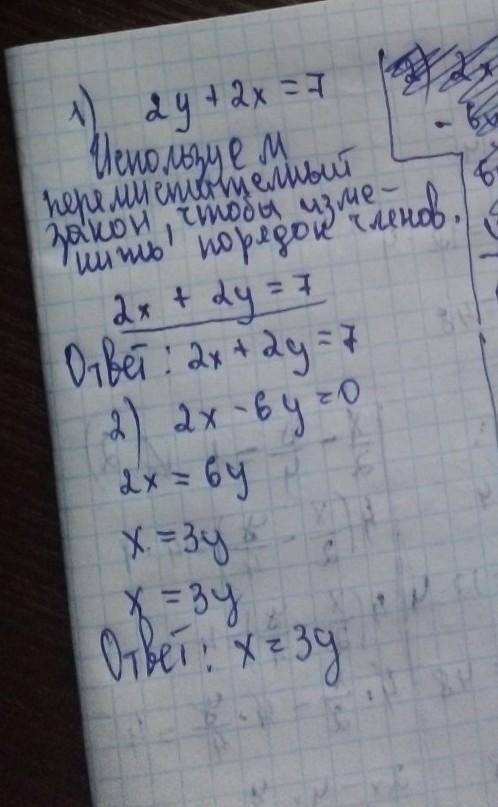 1) 2y + 2x = 7
Используем
перемистителный
закон, чтобы изме-
нить порядок членов.
2x + 2y = 7
Ответ: 2x + 2y = 7
2) 2x - 6y = 0
2x = 6y
x = 3y
x = 3y
Ответ: x = 3y